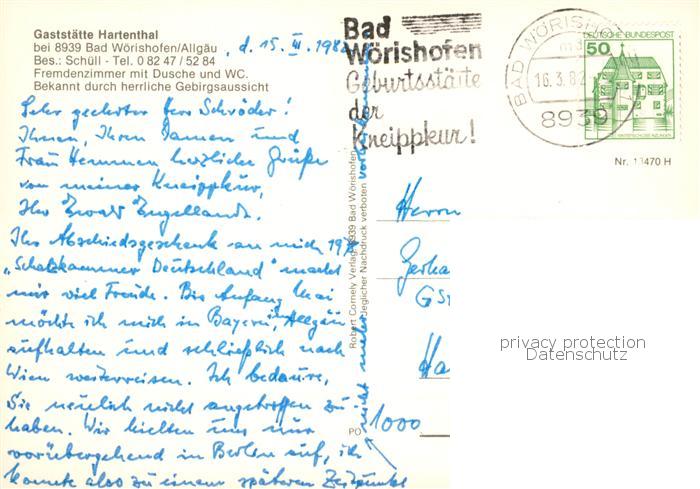 Gaststätte Hartenthal
bei 8939 Bad Wörishofen/Allgäu
Bes.: Schüll - Tel. 0 82 47 / 52 84
Fremdenzimmer mit Dusche und WC.
Bekannt durch herrliche Gebirgsaussicht
, d. 15. III. 1982
Bad
Wörishofen
Geburtsstätte
der
Kneippkur!
BAD WÖRISHOFEN
16.3.82
8939
DEUTSCHE BUNDESPOST
50
Nr. 13470 H
Sehr geehrter Herr Schröder!
Ihnen, Ihren Damen und
Frau Hemmen herzliche Grüße
von meiner Kneippkur,
Ihr Ewald Engellandt.
Ihr Abschiedsgeschenk an mich 197
„Schatzkammer Deutschland" macht
mir viel Freude. Bis Anfang Mai
möchte ich mich in Bayern, Allgäu
aufhalten und schließlich nach
Wien weiterreisen. Ich bedaure,
Sie neulich nicht angetroffen zu
haben. Wir hielten uns nur
vorübergehend in Berlin auf, ich
konnte also zu einem späteren Zeitpunkt
nicht mehr
Robert Cornely Verlag 8939 Bad Wörishofen
Jeglicher Nachdruck verboten
Herrn
Gerha
Ha
PO
1000
privacy protection
Datenschutz